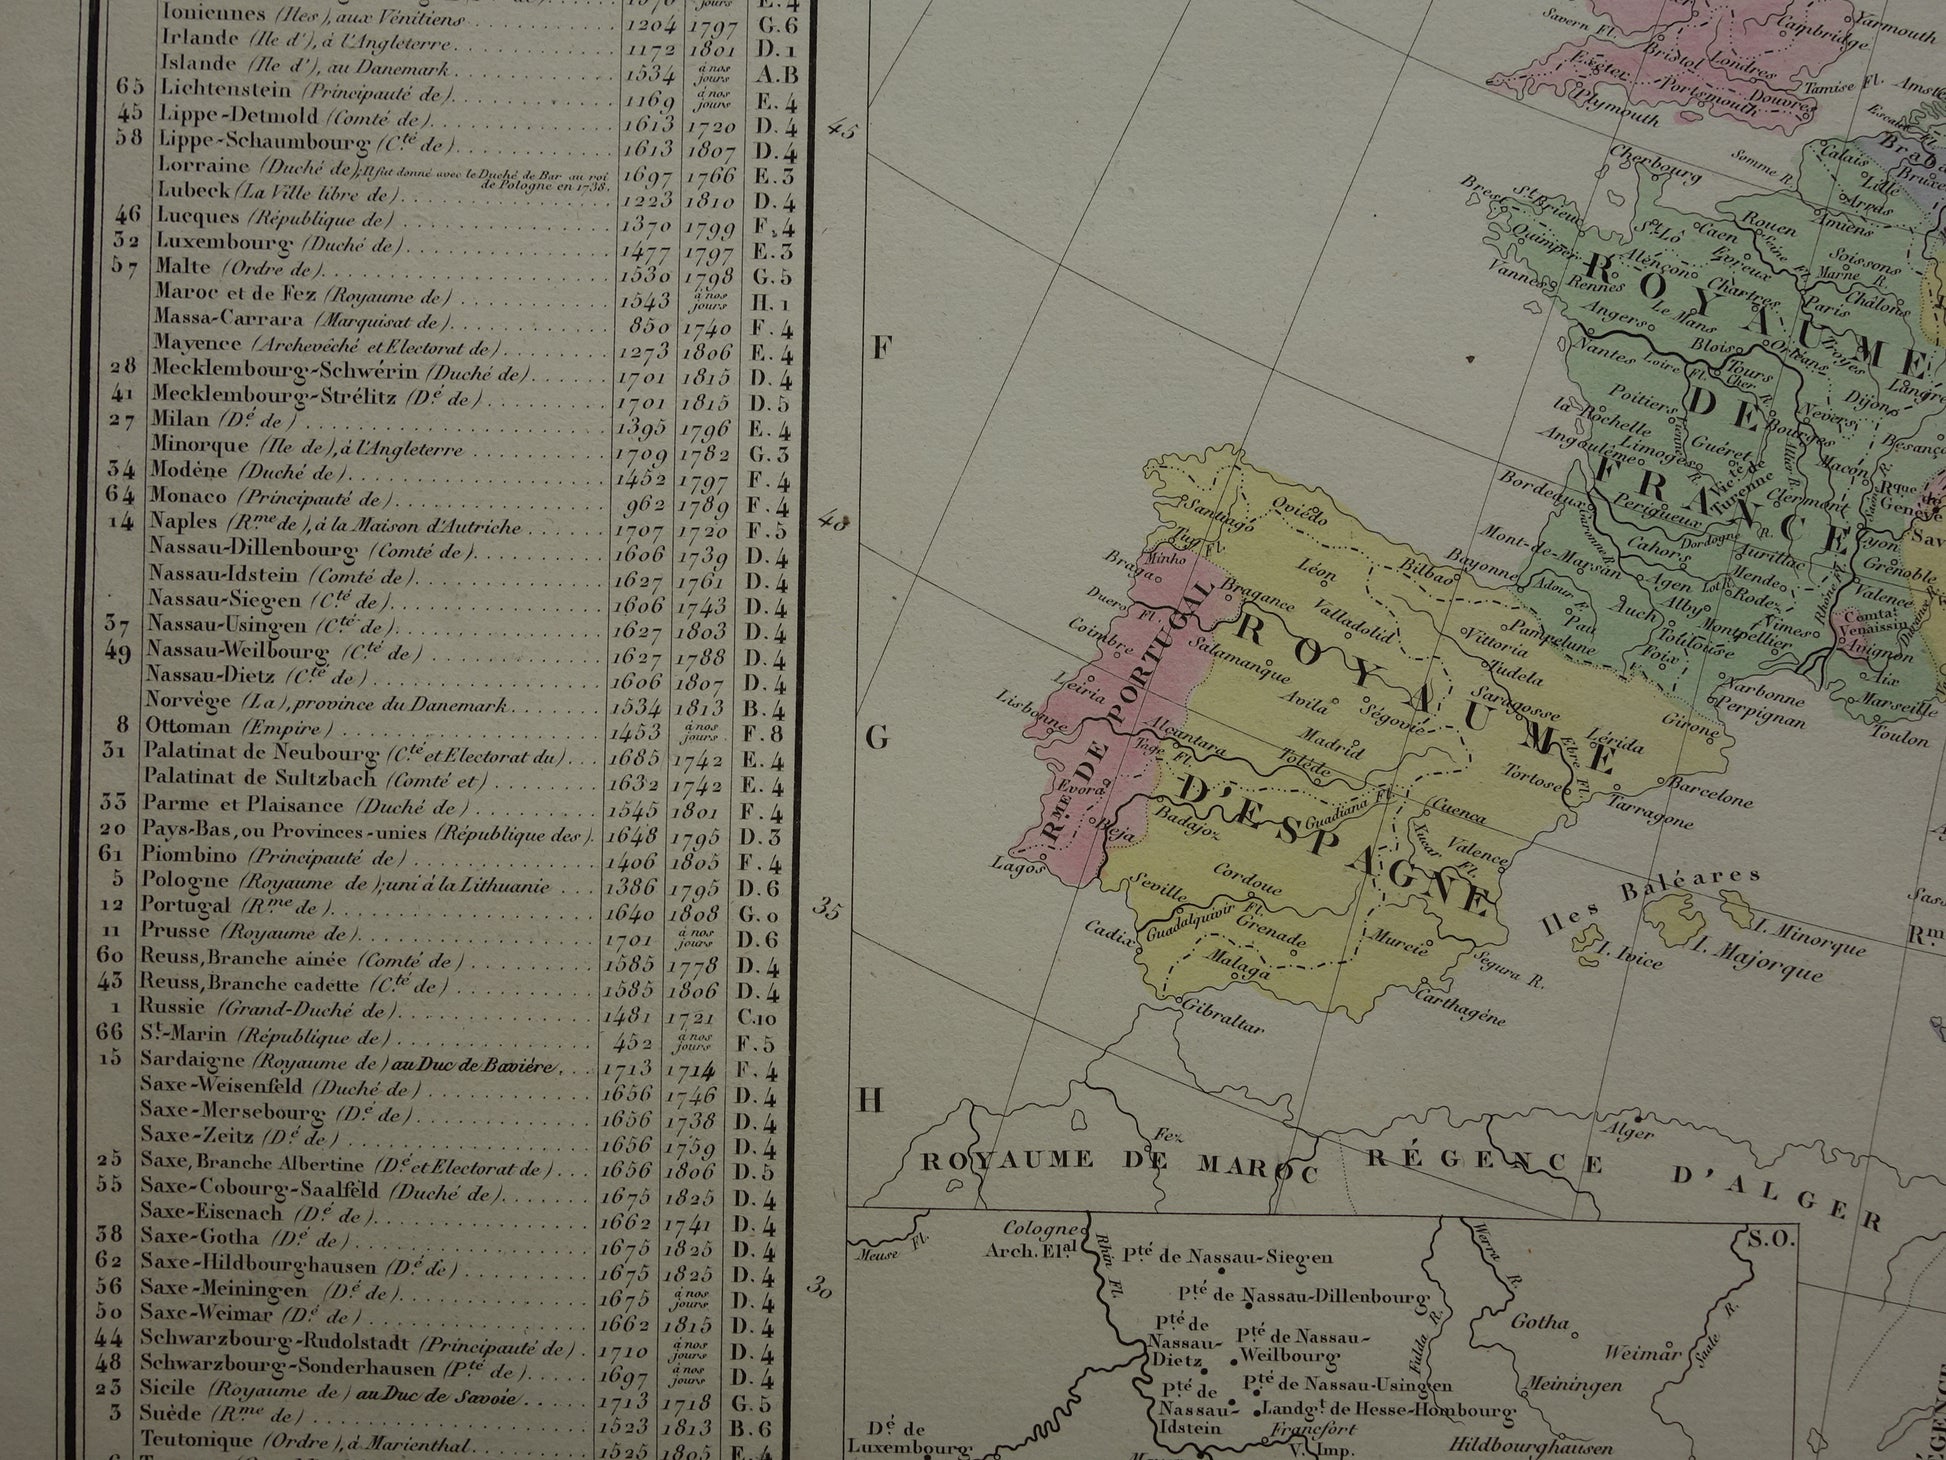 Ioniennes (Iles), aux Vénitiens 1204 1797 G.6
Irlande (Ile d'), à l'Angleterre 1172 1801 D.1
Islande (Ile d'), au Danemark 1534 à nos jours A.B
65 Lichtenstein (Principauté de) 1169 à nos jours E.4
45 Lippe-Detmold (Comté de) 1613 1720 D.4
58 Lippe-Schaumbourg (C.té de) 1613 1807 D.4
Lorraine (Duché de); Il fut donné avec le Duché de Bar au roi de Pologne en 1738. 1697 1766 E.3
Lubeck (La Ville libre de) 1223 1810 D.4
46 Lucques (République de) 1370 1799 F.4
32 Luxembourg (Duché de) 1477 1797 E.3
57 Malte (Ordre de) 1530 1798 G.5
Maroc et de Fez (Royaume de) 1543 à nos jours H.1
Massa-Carrara (Marquisat de) 850 1740 F.4
Mayence (Archevéché et Electorat de) 1273 1806 E.4
28 Mecklembourg-Schwérin (Duché de) 1701 1815 D.4
41 Mecklembourg-Strélitz (D.é de) 1701 1815 D.5
27 Milan (D.é de) 1395 1796 E.4
Minorque (Ile de), à l'Angleterre 1709 1782 G.3
34 Modène (Duché de) 1452 1797 F.4
64 Monaco (Principauté de) 962 1789 F.4
14 Naples (R.me de), à la Maison d'Autriche 1707 1720 F.5
Nassau-Dillenbourg (Comté de) 1606 1739 D.4
Nassau-Idstein (Comté de) 1627 1761 D.4
Nassau-Siegen (C.té de) 1606 1743 D.4
37 Nassau-Usingen (C.té de) 1627 1803 D.4
49 Nassau-Weilbourg (C.té de) 1627 1788 D.4
Nassau-Dietz (C.té de) 1606 1807 D.4
Norvége (La), province du Danemark 1534 1813 B.4
8 Ottoman (Empire) 1453 à nos jours F.8
31 Palatinat de Neubourg (C.té et Electorat du) 1685 1742 E.4
Palatinat de Sultzbach (Comté et) 1632 1742 E.4
33 Parme et Plaisance (Duché de) 1545 1801 F.4
20 Pays-Bas, ou Provinces-unies (République des) 1648 1795 D.3
61 Piombino (Principauté de) 1406 1805 F.4
5 Pologne (Royaume de); uni à la Lithuanie 1386 1795 D.6
12 Portugal (R.me de) 1640 1808 G.0
11 Prusse (Royaume de) 1701 à nos jours D.6
60 Reuss, Branche ainée (Comté de) 1585 1778 D.4
43 Reuss, Branche cadette (C.té de) 1585 1806 D.4
1 Russie (Grand-Duché de) 1481 1721 C.10
66 S.t-Marin (République de) 452 à nos jours F.5
15 Sardaigne (Royaume de) au Duc de Bavière 1713 1714 F.4
Saxe-Weisenfeld (Duché de) 1656 1746 D.4
Saxe-Mersebourg (D.é de) 1656 1738 D.4
Saxe-Zeitz (D.é de) 1656 1759 D.4
25 Saxe, Branche Albertine (D.é et Electorat de) 1656 1806 D.5
55 Saxe-Cobourg-Saalfeld (Duché de) 1675 1825 D.4
Saxe-Eisenach (D.é de) 1662 1741 D.4
38 Saxe-Gotha (D.é de) 1675 1825 D.4
62 Saxe-Hildbourghausen (D.é de) 1675 1825 D.4
56 Saxe-Meiningen (D.é de) 1675 à nos jours D.4
50 Saxe-Weimar (D.é de) 1662 1815 D.4
44 Schwarzbourg-Rudolstadt (Principauté de) 1710 à nos jours D.4
48 Schwarzbourg-Sonderhausen (P.té de) 1697 à nos jours D.4
23 Sicile (Royaume de) au Duc de Savoie 1713 1718 G.5
3 Suède (R.me de) 1523 1813 B.6
Teutonique (Ordre), à Marienthal 1525 1805 E.4
45
40
35
30
F
G
H
Savern Fl.
Yarmouth
Cambridge
Bristol
Londres
Exeter
Portsmouth
Douvres
Tamise Fl.
Plymouth
Cherbourg
Somme R.
Calais
Lille
Arras
Amiens
Brest
S.t Brieuc
Quimper
Vannes
S.t Lô
Caen
Rouen
Evreux
Seine Fl.
Soissons
Marne R.
Rennes
Alençon
Chartres
Paris
Châlons
Angers
Le Mans
Blois
Orléans
Troyes
Nantes
Loire Fl.
Tours
Cher
Langre
Poitiers
Bourges
Nevers
Dijon
la Rochelle
Angoulême
Limoges
Guéret
Allier R.
Macon
Besanço
Bordeaux
Périgueux
Vic.té de Turenne
Clermont
Lyon
R.que de Genève
Sav
Mont-de-Marsan
Garonne R.
Cahors
Dordogne R.
Aurillac
Grenoble
Bayonne
Adour F.
Agen
Lot R.
Mende
Rodez
Valence
Rhône
Pau
Auch
Alby
Nimes
Montpellier
Comtat Venaissin
Avignon
Toulouse
Foix
Aix
Marseille
Toulon
Narbonne
Perpignan
ROYAUME
DE
FRANCE
Santiago
Oviédo
Tuy
Minho Fl.
Braga
Bragance
Léon
Bilbao
Duero Fl.
Valladolid
Vittoria
Pampelune
Coimbre
Salamanque
Tudela
Leiria
Avila
Ségovie
Saragosse
Lisbonne
Alcantara
Tage Fl.
Madrid
Lérida
Girone
Tolède
Ebre Fl.
Tortose
Barcelone
Tarragone
Evora
Badajoz
Guadiana Fl.
Cuenca
Béja
Xucar Fl.
Valence
Lagos
Seville
Cordoue
Guadalquivir Fl.
Grenade
Murcie
Cadix
Malaga
Segura R.
Carthagéne
Gibraltar
R.me DE PORTUGAL
ROYAUME
D'ESPAGNE
Iles Baléares
I. Ivice
I. Majorque
I. Minorque
R.m
Fez
Alger
ROYAUME DE MAROC
RÉGENCE D'ALGER
Meuse Fl.
Cologne
Arch. El.al
Rhin Fl.
P.té de Nassau-Siegen
P.té de Nassau-Dillenbourg
P.té de Nassau-Dietz
P.té de Nassau-Weilbourg
P.té de Nassau-Usingen
P.té de Nassau-Idstein
Landg.t de Hesse-Hombourg
Francfort
V. Imp.
D.é de Luxembourg
Fulda R.
Werra R.
Gotha
Weimar
Saale R.
Meiningen
Hildbourghausen
S.O.